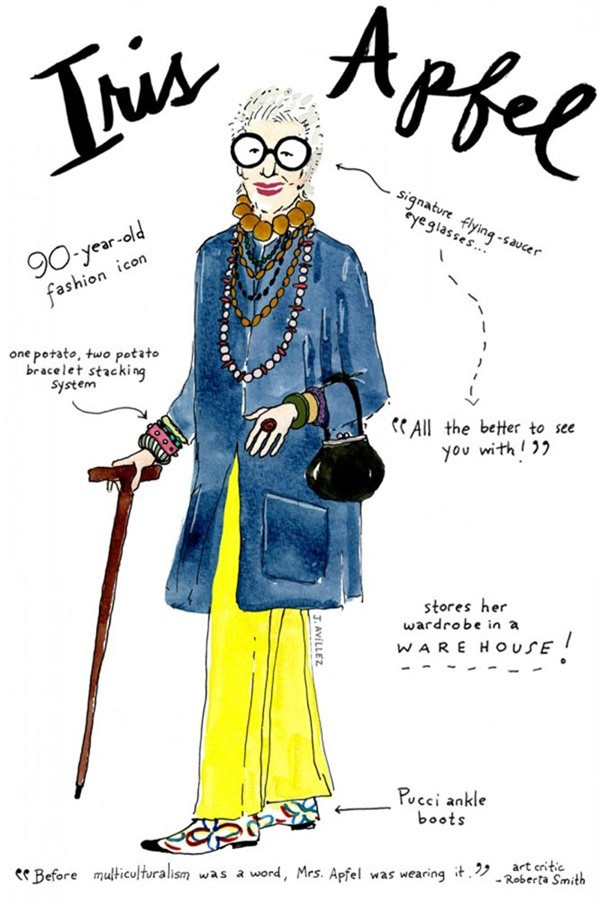 Iris Apfel
signature flying-saucer
eyeglasses...
90-year-old
fashion icon
one potato, two potato
bracelet stacking
system
"All the better to see
you with!"
stores her
wardrobe in a
WAREHOUSE!
J. AVILLEZ
Pucci ankle
boots
"Before multiculturalism was a word, Mrs. Apfel was wearing it." art critic
- Roberta Smith